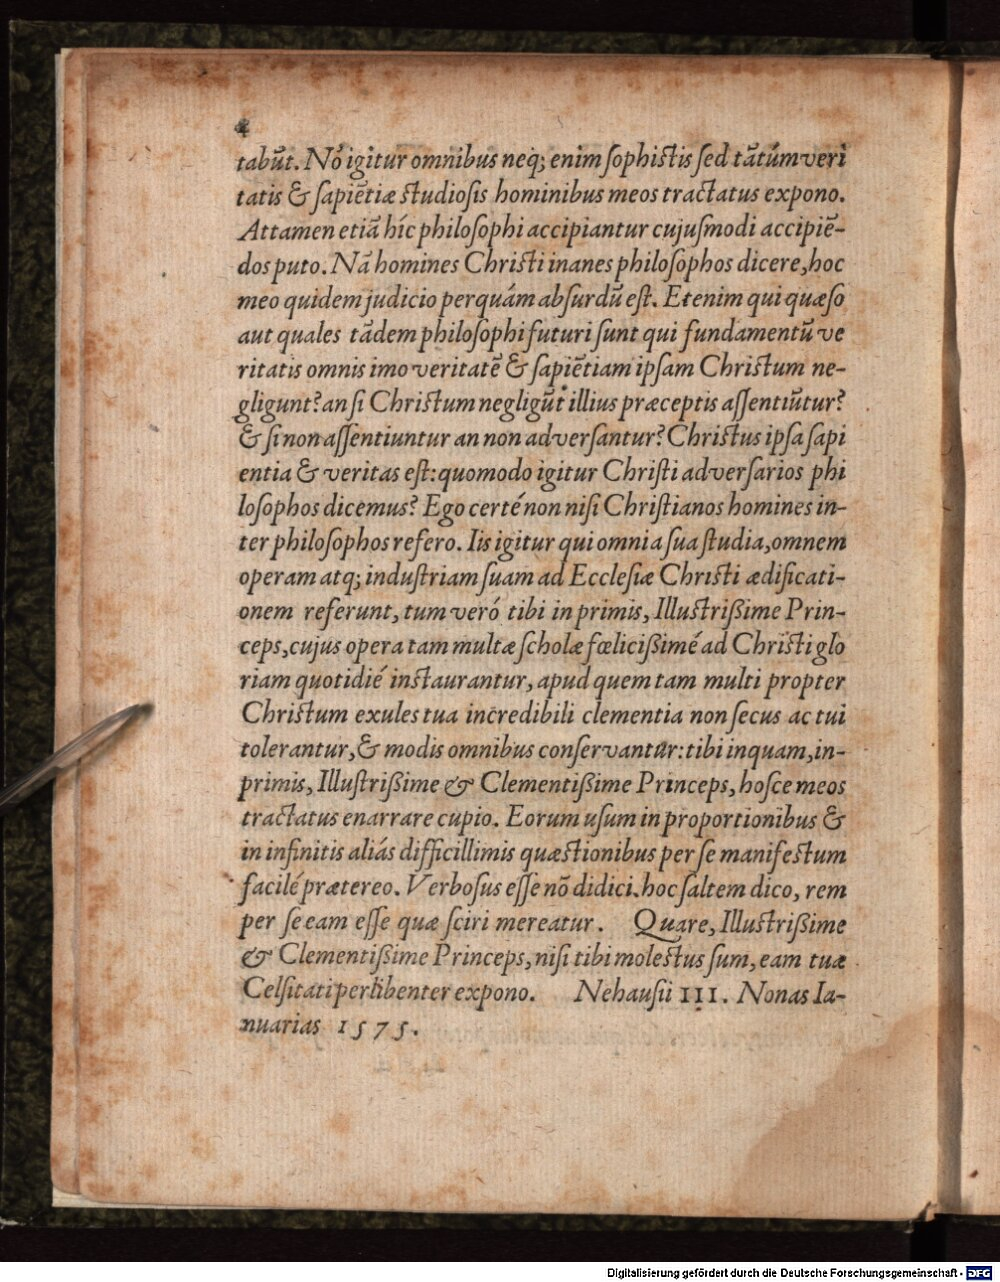 4
tabūt. Nō igitur omnibus neq; enim sophistis sed tātúm veri
tatis & sapiētiæ studiosis hominibus meos tractatus expono.
Attamen etiā híc philosophi accipiantur cujusmodi accipiē-
dos puto. Nā homines Christi inanes philosophos dicere, hoc
meo quidem judicio perquám absurdū est. Etenim qui quæso
aut quales tādem philosophi futuri sunt qui fundamentū ve
ritatis omnis imo veritatē & sapiētiam ipsam Christum ne-
gligunt? an si Christum negligūt illius præceptis assentiūtur?
& si non assentiuntur an non adversantur? Christus ipsa sapi
entia & veritas est: quomodo igitur Christi adversarios phi
losophos dicemus? Ego certé non nisi Christianos homines in-
ter philosophos refero. Iis igitur qui omnia sua studia, omnem
operam atq; industriam suam ad Ecclesiæ Christi ædificati-
onem referunt, tum veró tibi in primis, Illustrißime Prin-
ceps, cujus opera tam multæ scholæ fœlicißimé ad Christi glo
riam quotidié instaurantur, apud quem tam multi propter
Christum exules tua incredibili clementia non secus ac tui
tolerantur, & modis omnibus conservantur: tibi inquam, in-
primis, Illustrißime & Clementißime Princeps, hosce meos
tractatus enarrare cupio. Eorum usum in proportionibus &
in infinitis aliás difficillimis quæstionibus per se manifestum
facilé prætereo. Verbosus esse nō didici. hoc saltem dico, rem
per se eam esse quæ sciri mereatur. Quare, Illustrißime
& Clementißime Princeps, nisi tibi molestus sum, eam tuæ
Celsitati perlibenter expono. Nehausii III. Nonas Ia-
nuarias 1575.
Digitalisierung gefördert durch die Deutsche Forschungsgemeinschaft - DFG